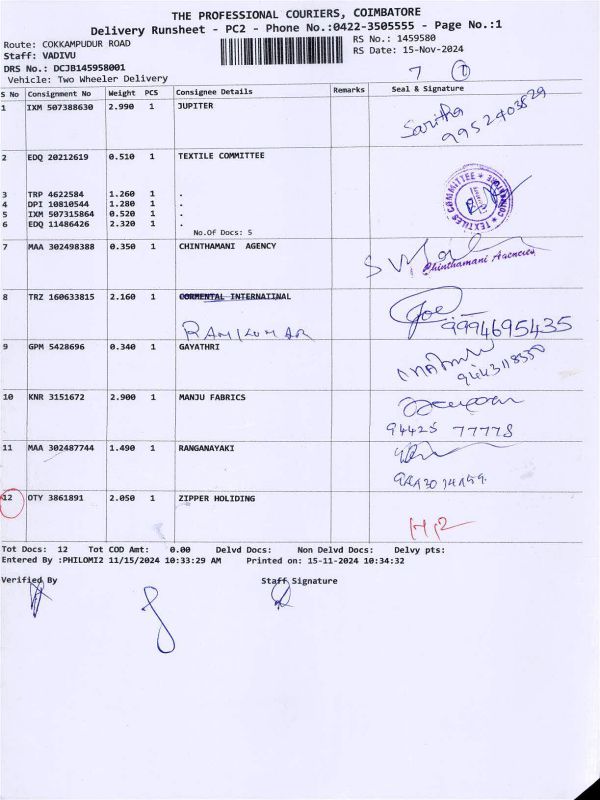 THE PROFESSIONAL COURIERS, COIMBATORE
Delivery Runsheet - PC2 - Phone No.:0422-3505555 - Page No.:1
Route: COKKAMPUDUR ROAD
RS No.: 1459580
Staff: VADIVU
RS Date: 15-Nov-2024
DRS No.: DCJB145958001
Vehicle: Two Wheeler Delivery
7 1
S No Consignment No Weight PCS Consignee Details Remarks Seal & Signature
1 IXM 507388630 2.990 1 JUPITER
Saritha
9952403829
2 EDQ 20212619 0.510 1 TEXTILE COMMITTEE
TEXTILES COMMITTEE
3 TRP 4622584 1.260 1 .
4 DPI 10810544 1.280 1 .
5 IXM 507315864 0.520 1 .
6 EDQ 11486426 2.320 1 .
No.Of Docs: 5
7 MAA 302498388 0.350 1 CHINTHAMANI AGENCY
Chinthamani Agencies
8 TRZ 160633815 2.160 1 CORMENTAL INTERNATINAL
RAMKUMAR
9994695435
9 GPM 5428696 0.340 1 GAYATHRI
10 KNR 3151672 2.900 1 MANJU FABRICS
94425 77778
11 MAA 302487744 1.490 1 RANGANAYAKI
12 OTY 3861891 2.050 1 ZIPPER HOLIDING
Tot Docs: 12 Tot COD Amt: 0.00 Delvd Docs: Non Delvd Docs: Delvy pts:
Entered By :PHILOMI2 11/15/2024 10:33:29 AM Printed on: 15-11-2024 10:34:32
Verified By Staff Signature